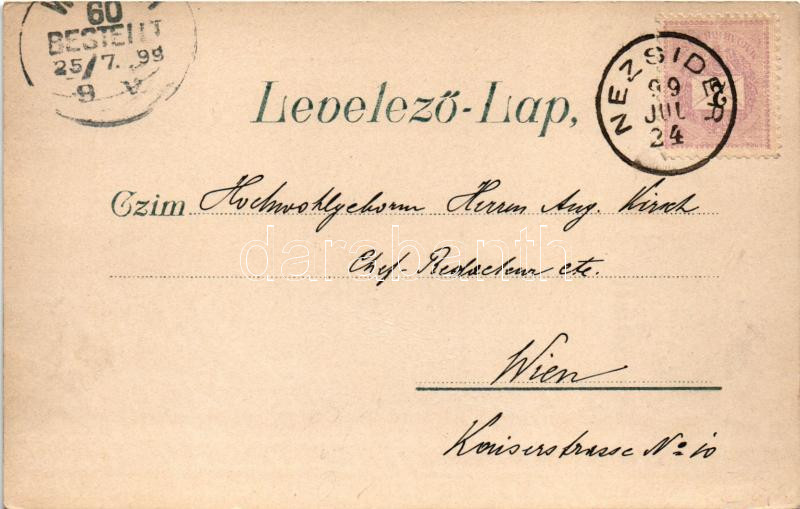 60
BESTELLT
25/7. 99
Levelező-Lap,
NEZSIDER
99
JUL
24
Czim Hochwohlgeborn Herren Aug. Kirsch
darabanth
Chef-Redacteur etc.
Wien
Kaiserstrasse No 10